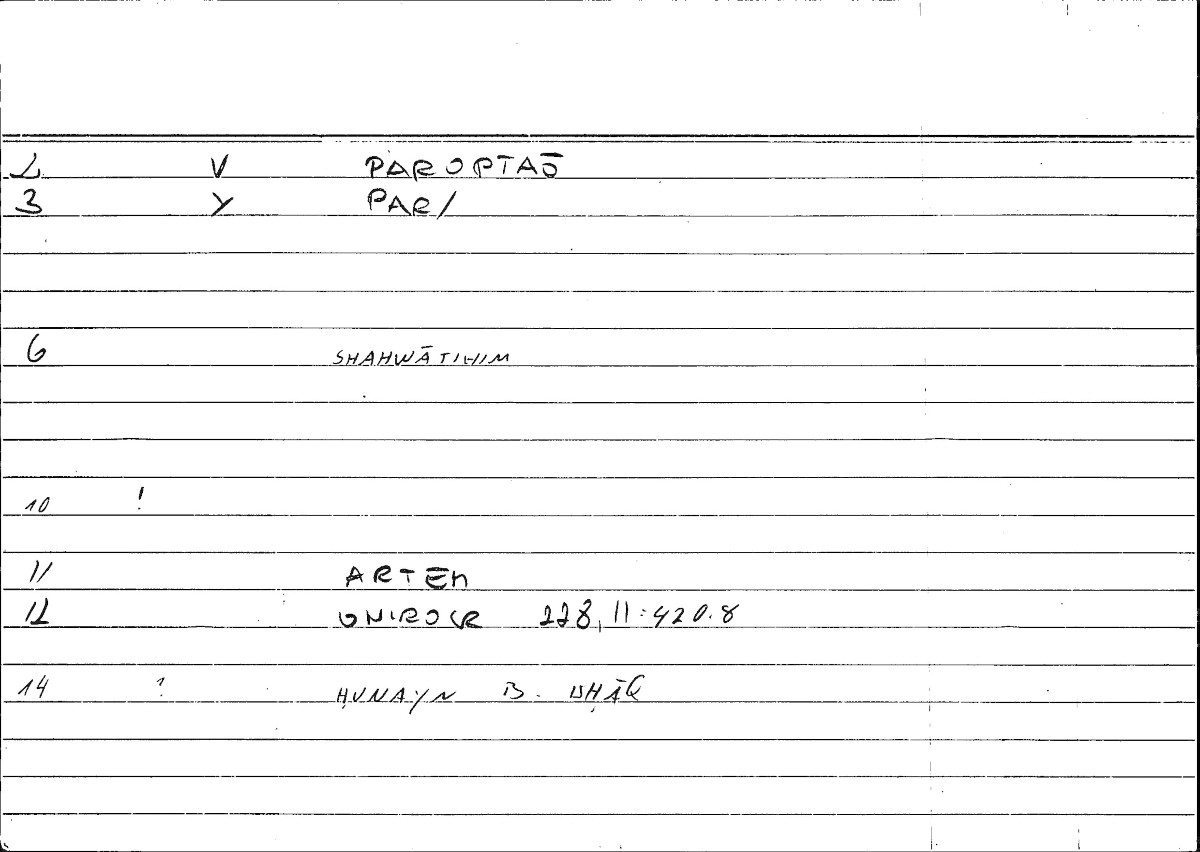 2 V PAROPTAŌ
3 Y PAR/
6 SHAHWĀTIHIM
10 !
11 ARTEM
12 ONIROCR 228,11:420.8
14 ? ḤUNAYN B. ISḤĀQ